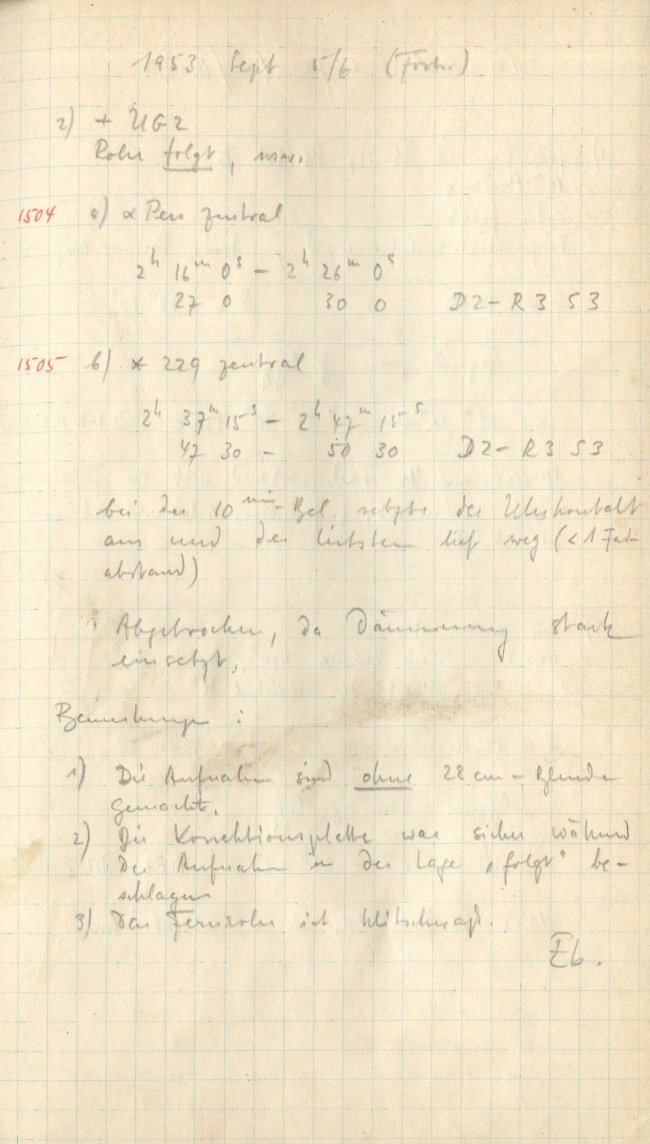 1953 Sept 5/6. (Forts.)
2) + UG2
Rohr folgt, usw.
1504 a) α Pers zentral
2h 16m 0s – 2h 26m 0s
27 0 30 0 D2–R3 S3
1505 b) * 229 zentral
2h 37m 15s – 2h 47m 15s
47 30 – 50 30 D2–R3 S3
bei der 10 min Bel. setzte der Uhrkontakt
aus und der Leitstern lief weg (<1 Fad-
abstand)
Abgebrochen, da Dämmerung stark
einsetzt.
Bemerkungen :
1) Die Aufnahmen sind ohne 28 cm – Blende
gemacht.
2) Die Korrektionsplatte war sicher während
der Aufnahmen in der Lage „folgt“ be-
schlagen
3) Das Fernrohr ist klitschnaß.